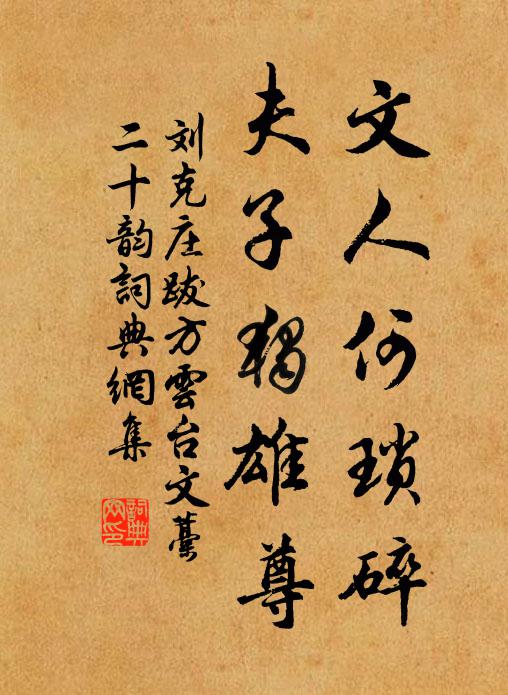 文人何瑣碎
夫子獨雄尊
刘克庄跋方雲台文藁
二十韵詞典網集